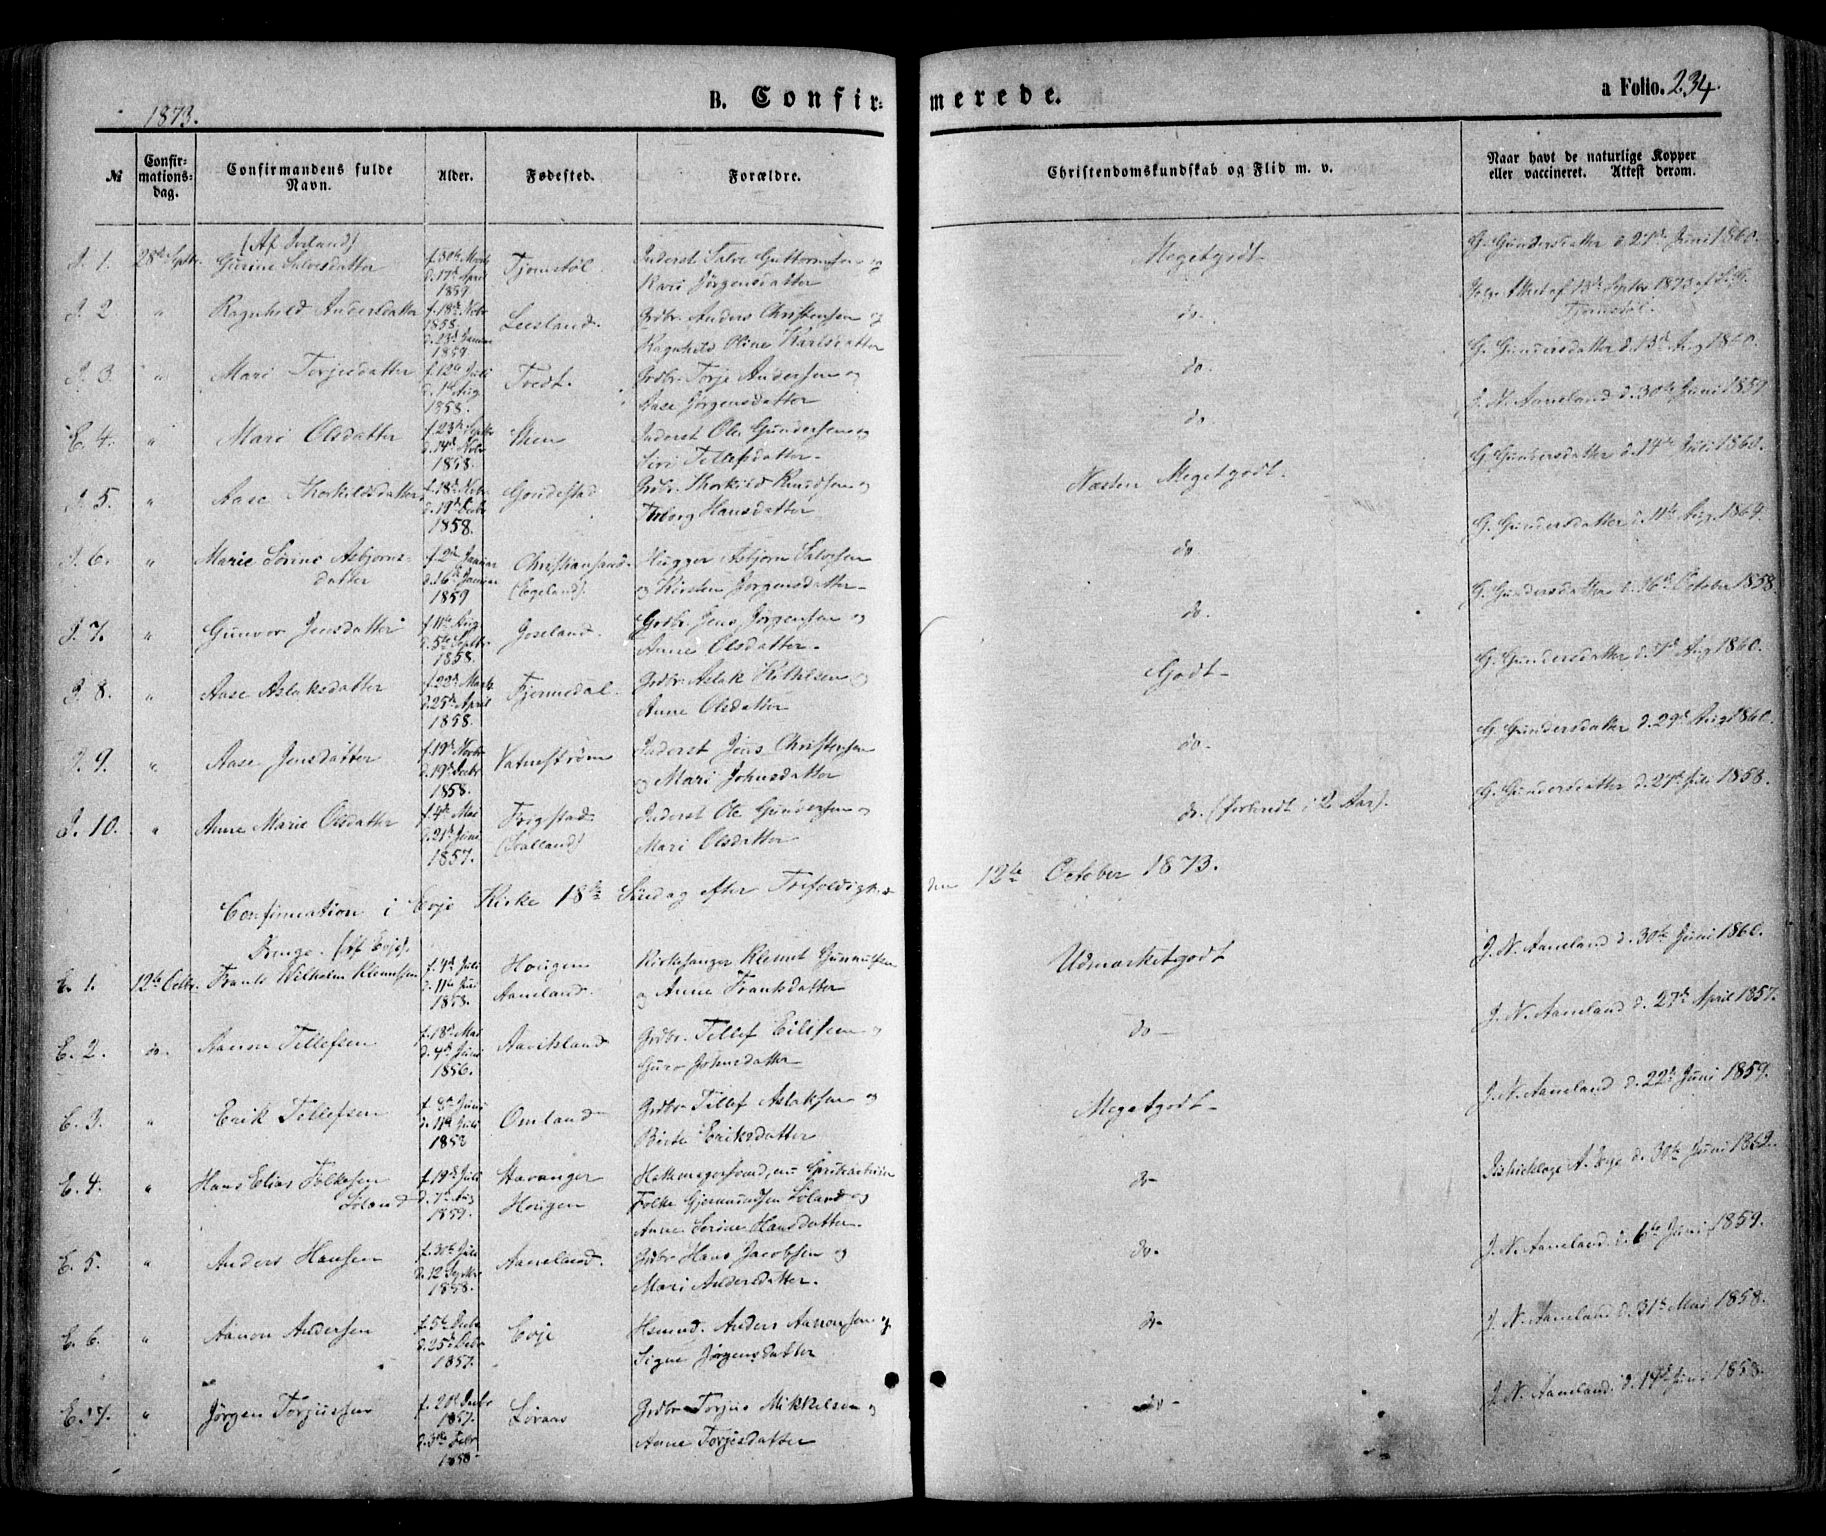 1873.
B. Confir-
merede.
a Folio. 234.
№
Confir-
mations-
dag.
Confirmandens fulde
Navn.
Alder.
Fødested.
Forældre.
Christendomskundskab og Flid m. v.
Naar havt de naturlige Kopper
eller vaccineret. Attest derom.
(Af Iveland)
I. 1. 28de Septbr. Gurine Salvesdatter f. 30te Marts d. 17de April 1859 Tjomstøl. Inderst Salve Guttormsen og Kari Jørgensdatter Megetgodt G. Gundersdatter d. 27de Juni 1860.
I. 2 " Ragnhild Andersdatter f. 18de Novbr 1858. d. 23de Januar 1859 Leesland. Grdbr. Anders Christensen og Ragnhild Oline Karlsdatter do. Attest af 13de Septbr 1873 af
Tjomstøl.
I. 3. " Mari Torjesdatter f. 12te Juli d. 1ste Aug 1858. Tvedt. Grdbr. Torje Andersen og Aase Jørgensdatter do. G. Gundersdatter d. 13de Aug 1860.
E. 4. " Mari Olsdatter f. 23de Septbr d. 14de Novbr 1858. Inderst Ole Gundersen og Siri Tellefsdatter. do J. N. Aaneland d. 30te Juni 1859
I. 5. " Aase Thorkildsdatter f. 18de Novbr d. 19de Decbr 1858. Gondestad Grdbr. Thorkild Knudsen og Torborg Hansdatter Næsten Megetgodt. G. Gundersdatter d. 14de Juli 1860.
I. 6. " Marie Sørine Asbjørns-
datter f. 2den Januar d. 16de Januar 1859 Christianssand. (Egeland). Hugger Asbjørn Salvesen og Kirsten Jørgensdatter do G. Gundersdatter d. 11te Aug. 1864.
I. 7. " Gunvor Jensdatter f. 11te Aug d. 5te Septbr 1858. Joseland. Grdbr. Jens Jørgensen og Anne Olsdatter. do. G. Gundersdatter d. 16de October 1858.
I. 8. " Aase Aslaksdatter f. 22de Marts d. 25de April 1858. Fjermedal. Grdbr. Aslak Kittelsen og Anne Olsdatter Godt G. Gundersdatter d. 7de Aug 1860.
I. 9. " Aase Jensdatter f. 19de Novbr d. 19de Decbr 1858. Vatnestrøm Inderst Jens Christensen og Mari Johnsdatter do. G. Gundersdatter d. 29de Aug 1860.
I. 10. " Anne Marie Olsdatter f. 4de Mai d. 21de Juni 1857. Frigstad. Inderst Ole Gundersen og Mari Olsdatter do (forberedt i 2 Aar). G. Gundersdatter d. 27de Juli 1858.
Confirmation i Evje Kirke 18de Søndag efter Trefoldighed den 12te October 1873.
Drenge. (Af Evje).
E. 1. 12te Octbr. Frants Wilhelm Klemtsen f. 4de Juli d. 11te Juli 1858. Hougen Aaneland. Kirkesanger Klemt Gunnulfsen og Anne Frantsdatter Udmærketgodt J. N. Aaneland d. 30te Juni 1860.
E. 2. do. Aanon Tellefsen f. 18de Mai d. 4de Juni 1856. Aavitsland Grdbr. Tellef Eilifsen og Guro Johnsdatter do J. N. Aaneland d. 27de April 1857.
E. 3. " Erik Tellefsen f. 8de Juni d. 11te Juli 1858 Omland Grdbr Tellef Aslaksen og Birte Eriksdatter Megetgodt J. N. Aaneland d. 22de Juni 1859.
E. 4. " Hans Elias Folkesen
Liland f. 19de Juli d. 7de Aug 1859. Stavanger Hougen Folke Gjermundsen Liland og Anne Serine Hansdatter. do Districtslæge A. Evje d. 30te Juni 1862.
E. 5. " Anders Hansen f. 30te Juli d. 12te Septbr 1858. Aaneland. Grdbr Hans Jacobsen og Mari Andersdatter. do. J. N. Aaneland d. 6te Juni 1859.
E. 6. " Aanon Andersen f. 5te Decbr d. 25de Decbr 1857. Evje Hsmnd. Anders Aanonsen og Signe Jørgensdatter do J. N. Aaneland d. 31te Mai 1858.
E. 7. " Jørgen Torjussen f. 20de Decbr 1857. d. 3die Febr 1858. Løvaas Grdbr Torjus Mikkelsen og Anne Torjesdatter do J. N. Aaneland d. 14de Juni 1858.